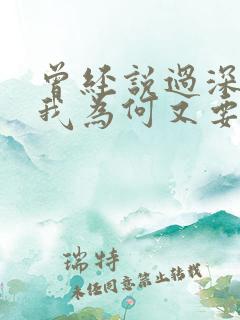 曾经說過深
我為何又要
瑞特
未经同意禁止转载